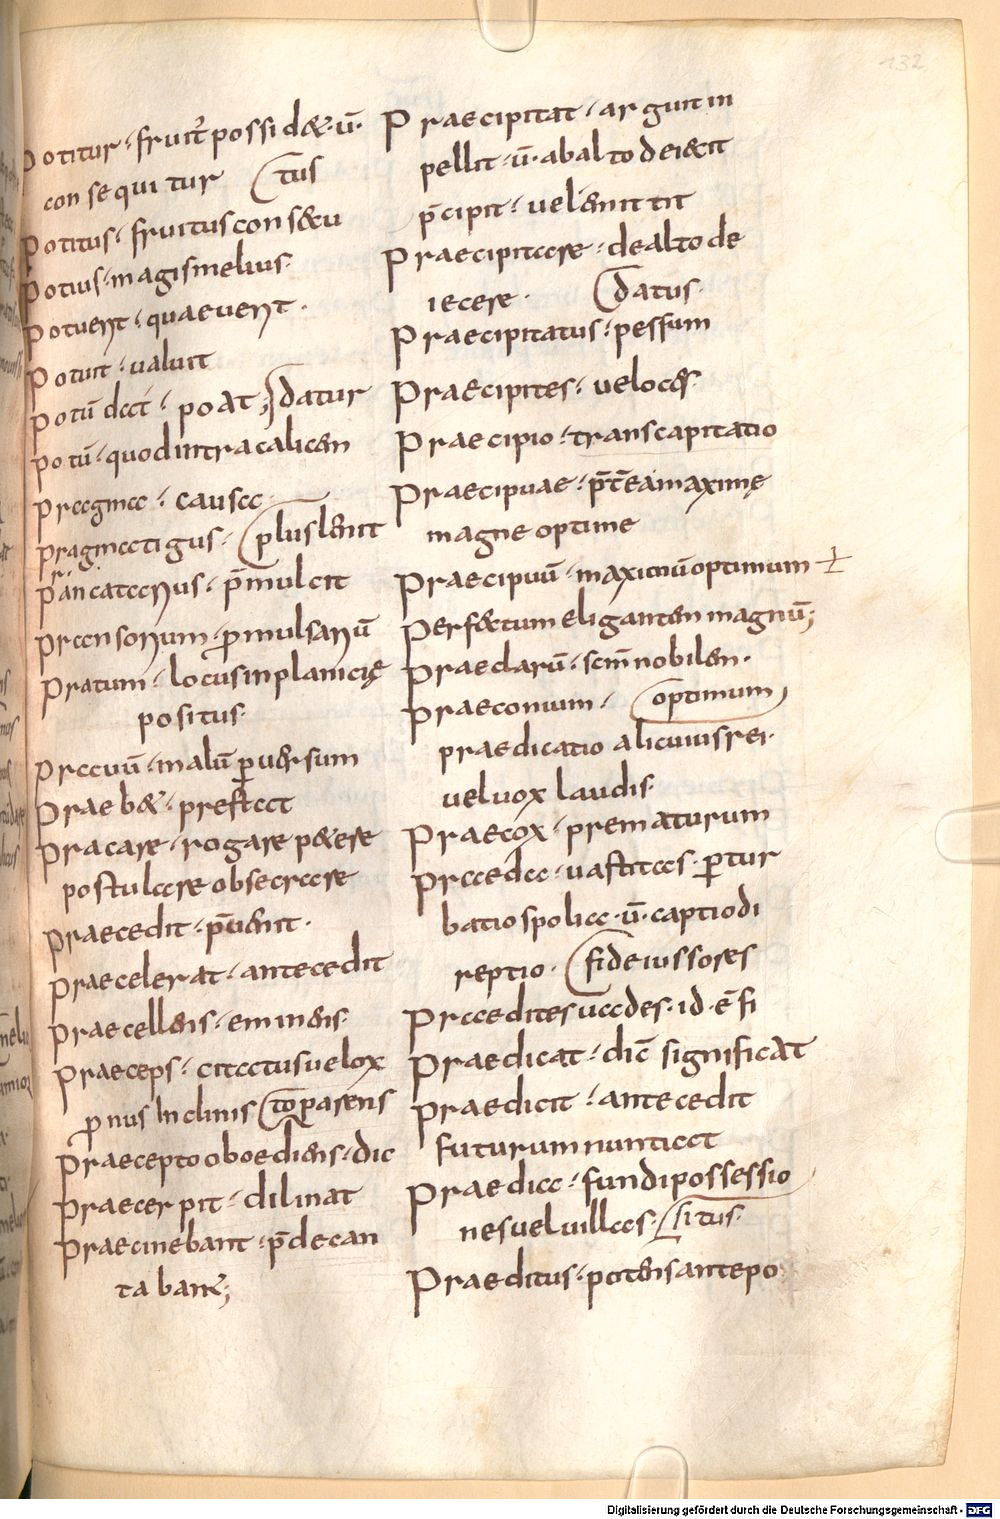 132
Potitur · fruit̄ possid& · ū ·
consequitur (tus
Potitus · fruitus consecu
Potius · magis melius ·
Potuerit · quae uerit ·
Potuit · ualuit
Potū dcci · poat; (datur
Potū · quod intra calicem
Pracgmcc · causcc
Pragmccticus · (plus lenit
Prancatccrius · p̄mulcit
Prccnsorium · p mulsariū
Pratum · locus in planicię
positus ·
Prccuū · malū puersum
Praeb& · prestcct
Pracare · rogare p&ere
postulccre obsecrccre
Praecedit · p̄uenit ·
Praecelerat · antecedit
Praecellens · eminens ·
Praeceps · citcctus uelox
pnus Inclinis (to parens
Praecepto oboediens · dic
Praecerpit · dilinat
Praecinebant · p̄decan
tabant;
Praecipitat · arguit in
pellit · ū · ab alto deiecit
p̄cipit · uel enititit
Praecipitccre · de alto de
iecere · (datus ·
Praecipitatus · pessum
Praecipites · ueloces ·
Praecipio · transcapitatio
Praecipuae · p̄t̄ea maximę
magne optime
Praecipuū · maximū optimum
Perf&tum eligantem magnū;
Praeclarū · scm̄ nobilem ·
Praeconium · (optimum)
praedicatio alicuius rei ·
uel uox laudis ·
Praecox · prematurum
Prccedcc · uastitccs · ptur
batio spolicc · ū · captio di
reptio · (fideiussores
Prccedites uccdes · id · ē fi
Praedicat · dic̄ significat
Praedicit · antecedit
futurum nunticct
Praedicc · fundi possessio
nes uel uillccs · (situs ·
Praeditus · potens antepo
Digitalisierung gefördert durch die Deutsche Forschungsgemeinschaft - DFG